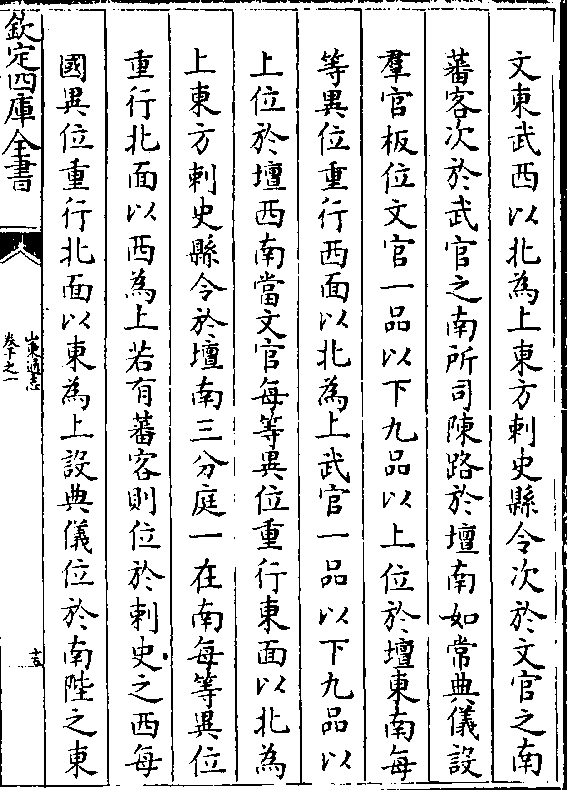 文東武西以北為上東方刺史縣令次於文官之南
蕃客次於武官之南所司陳輅於壇南如常典儀設
羣官板位文官一品以下九品以上位於壇東南每
等異位重行西面以北為上武官一品以下九品以
上位於壇西南當文官每等異位重行東面以北為
上東方刺史縣令於壇南三分庭一在南每等異位
重行北面以西為上若有蕃客則位於刺史之西每
國異位重行北面以東為上設典儀位於南陛之東
欽定四庫全書
山東通志
卷十一之一